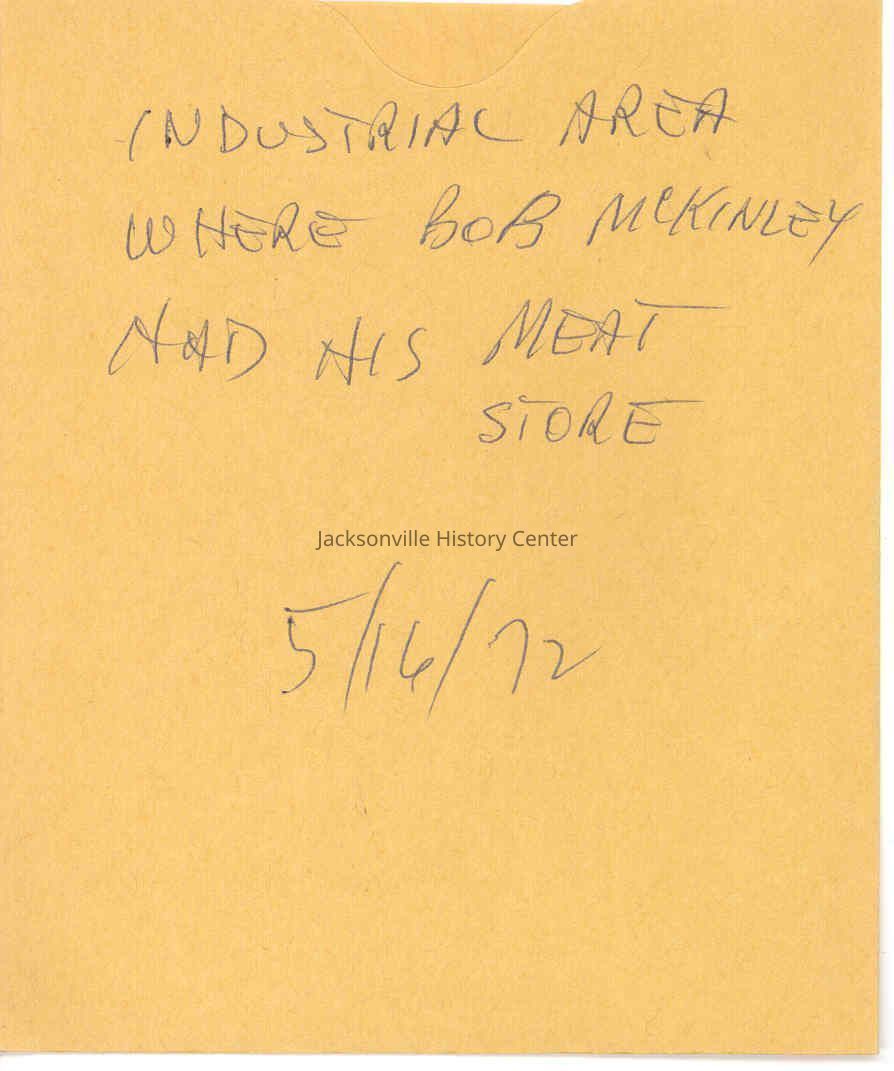 INDUSTRIAL AREA
WHERE BOB McKINLEY
HAD HIS MEAT
STORE
Jacksonville History Center
5/16/72